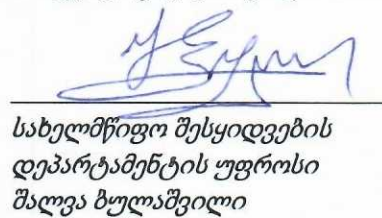 სახელმწიფო შესყიდვების
დეპარტამენტის უფროსი
შალვა ბულაშვილი